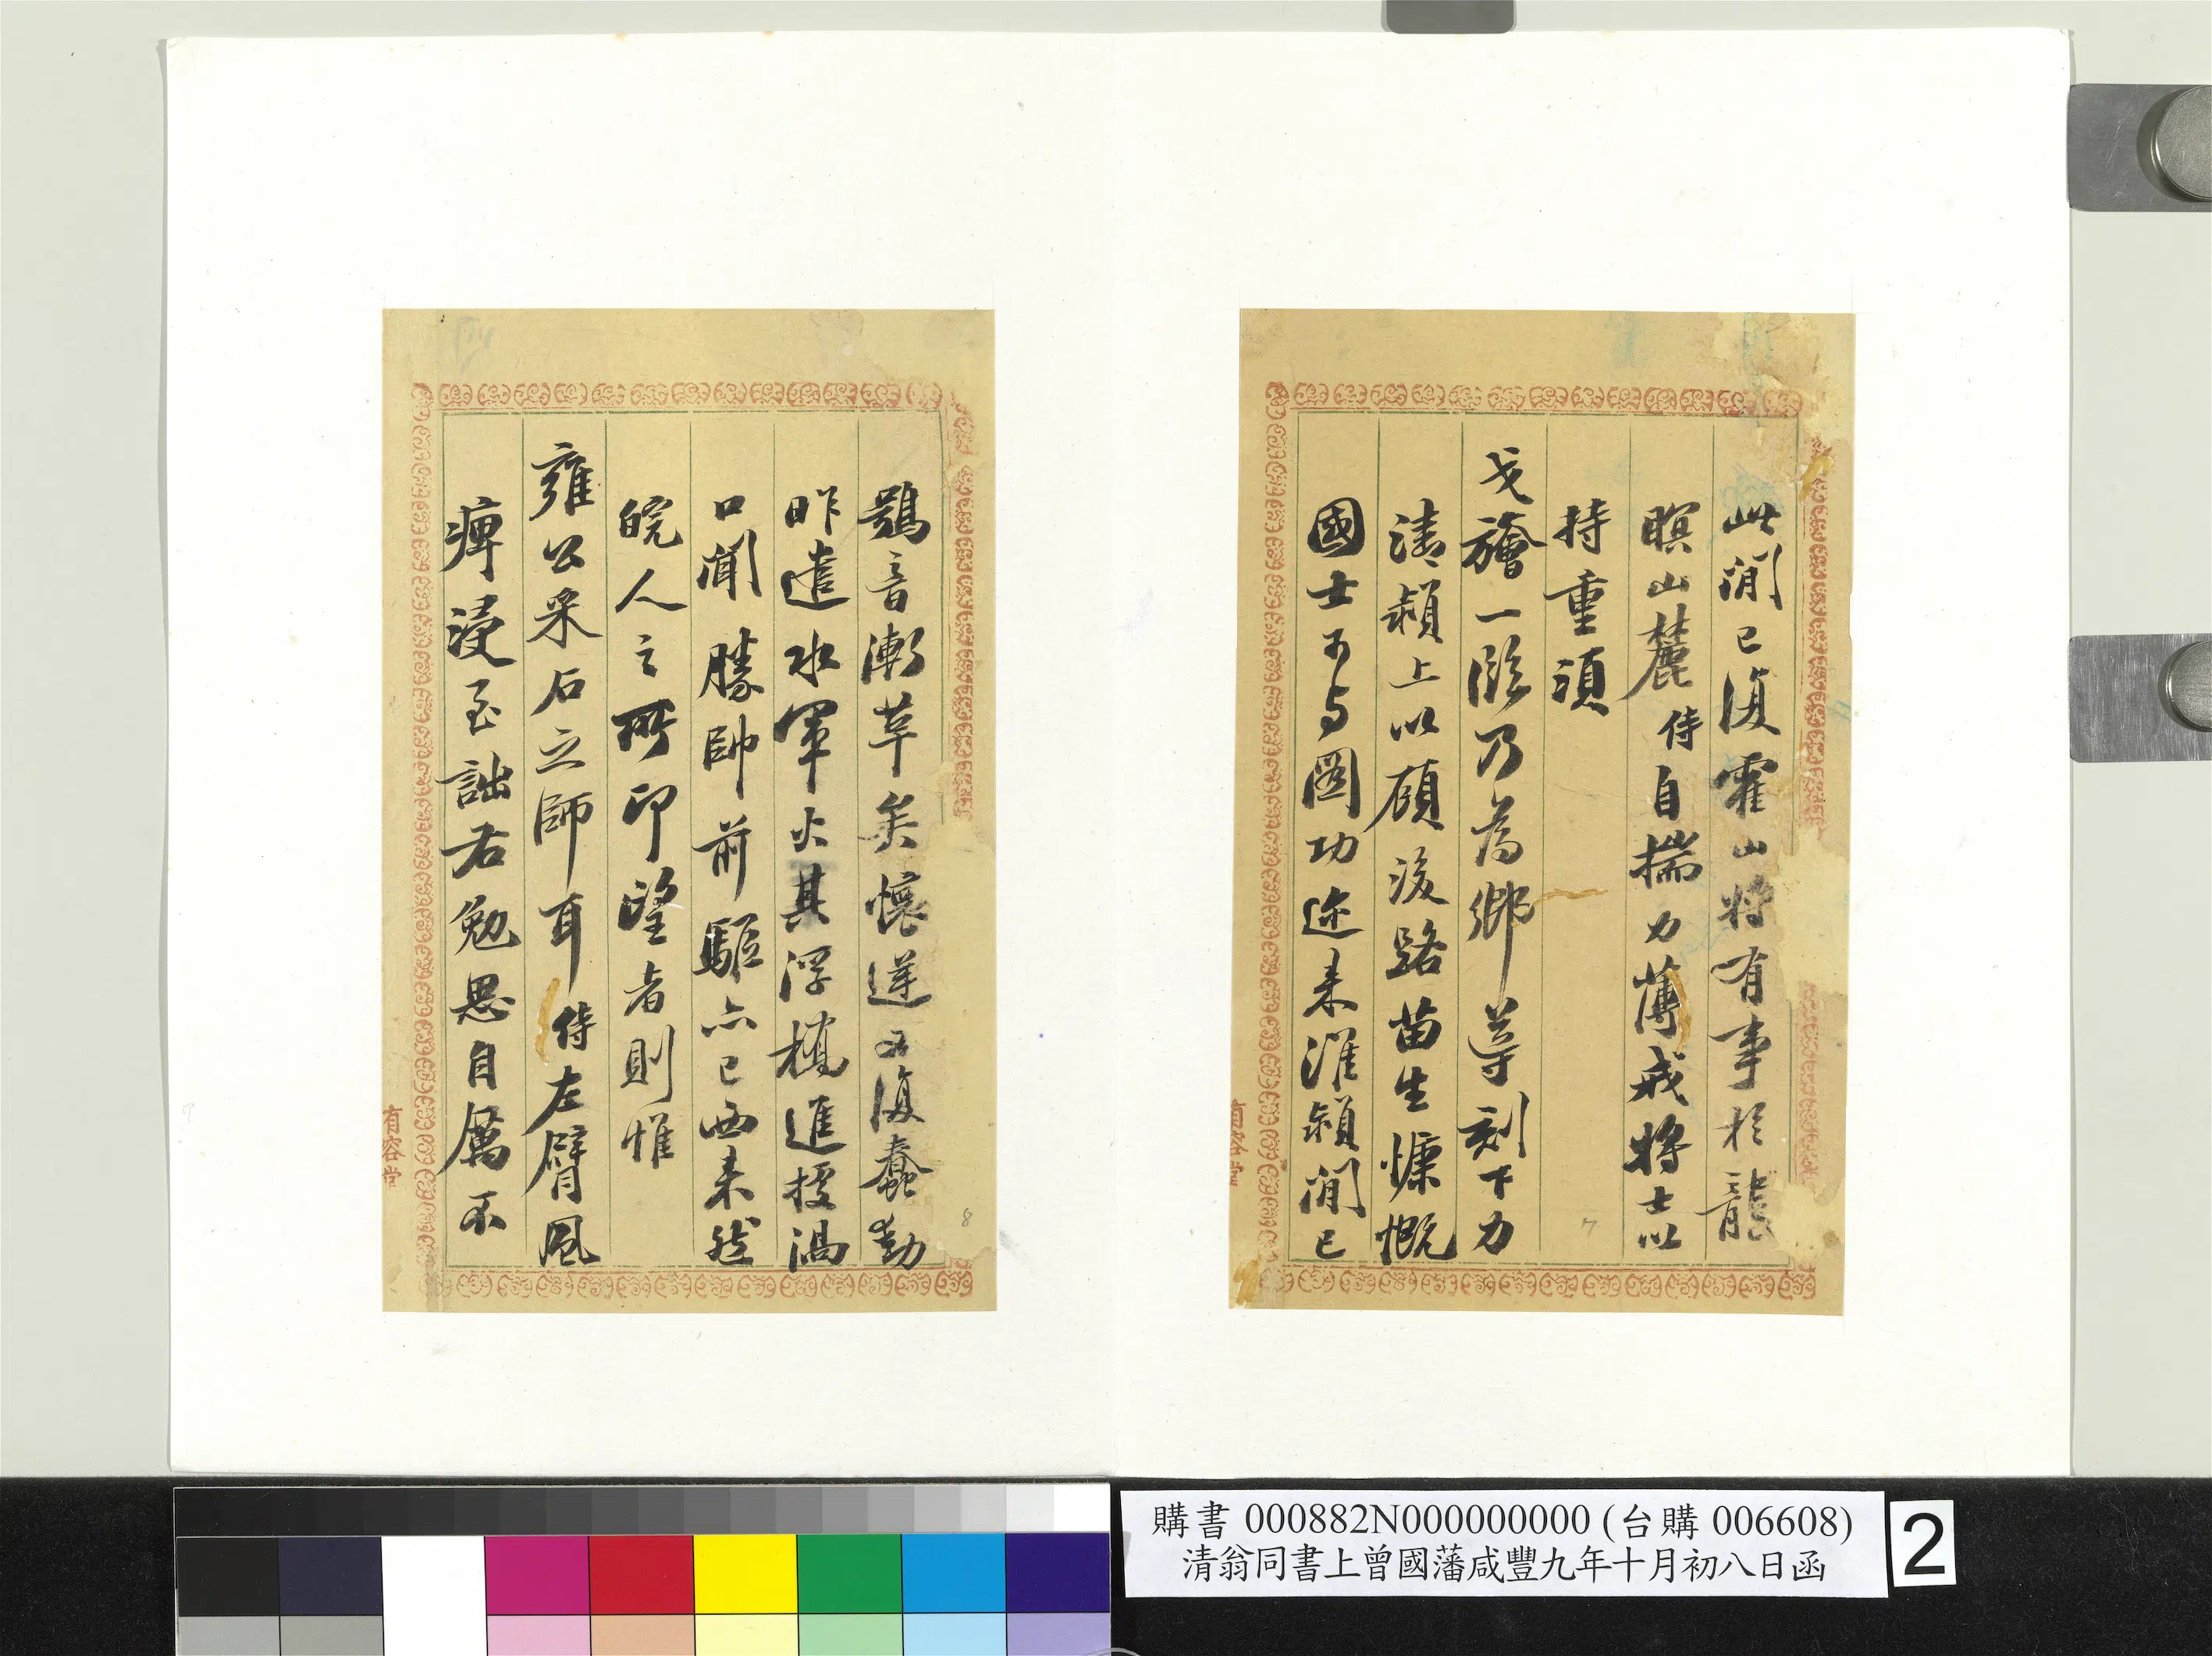 此間已復霍山將有事於龍
瞑山麓侍自揣力薄戒將士以
持重須
戈旝一臨乃為鄉導刻下力
清潁上以顧後路苗生慷慨
國士可與圖功迩來淮潁間已
鴞音漸革矣懷遠又復蠢動
昨遣水軍火其浮橋進援渦
口聞勝帥前驅亦已西來然
皖人之所印望者則惟
雍公采石之師耳侍左臂風
痺浸至詘右勉思自厲不
有容堂
有容堂
7
8
購書 000882N000000000 (台購 006608)
清翁同書上曾國藩咸豐九年十月初八日函
2